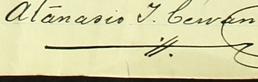 Atanasio T. Cervan